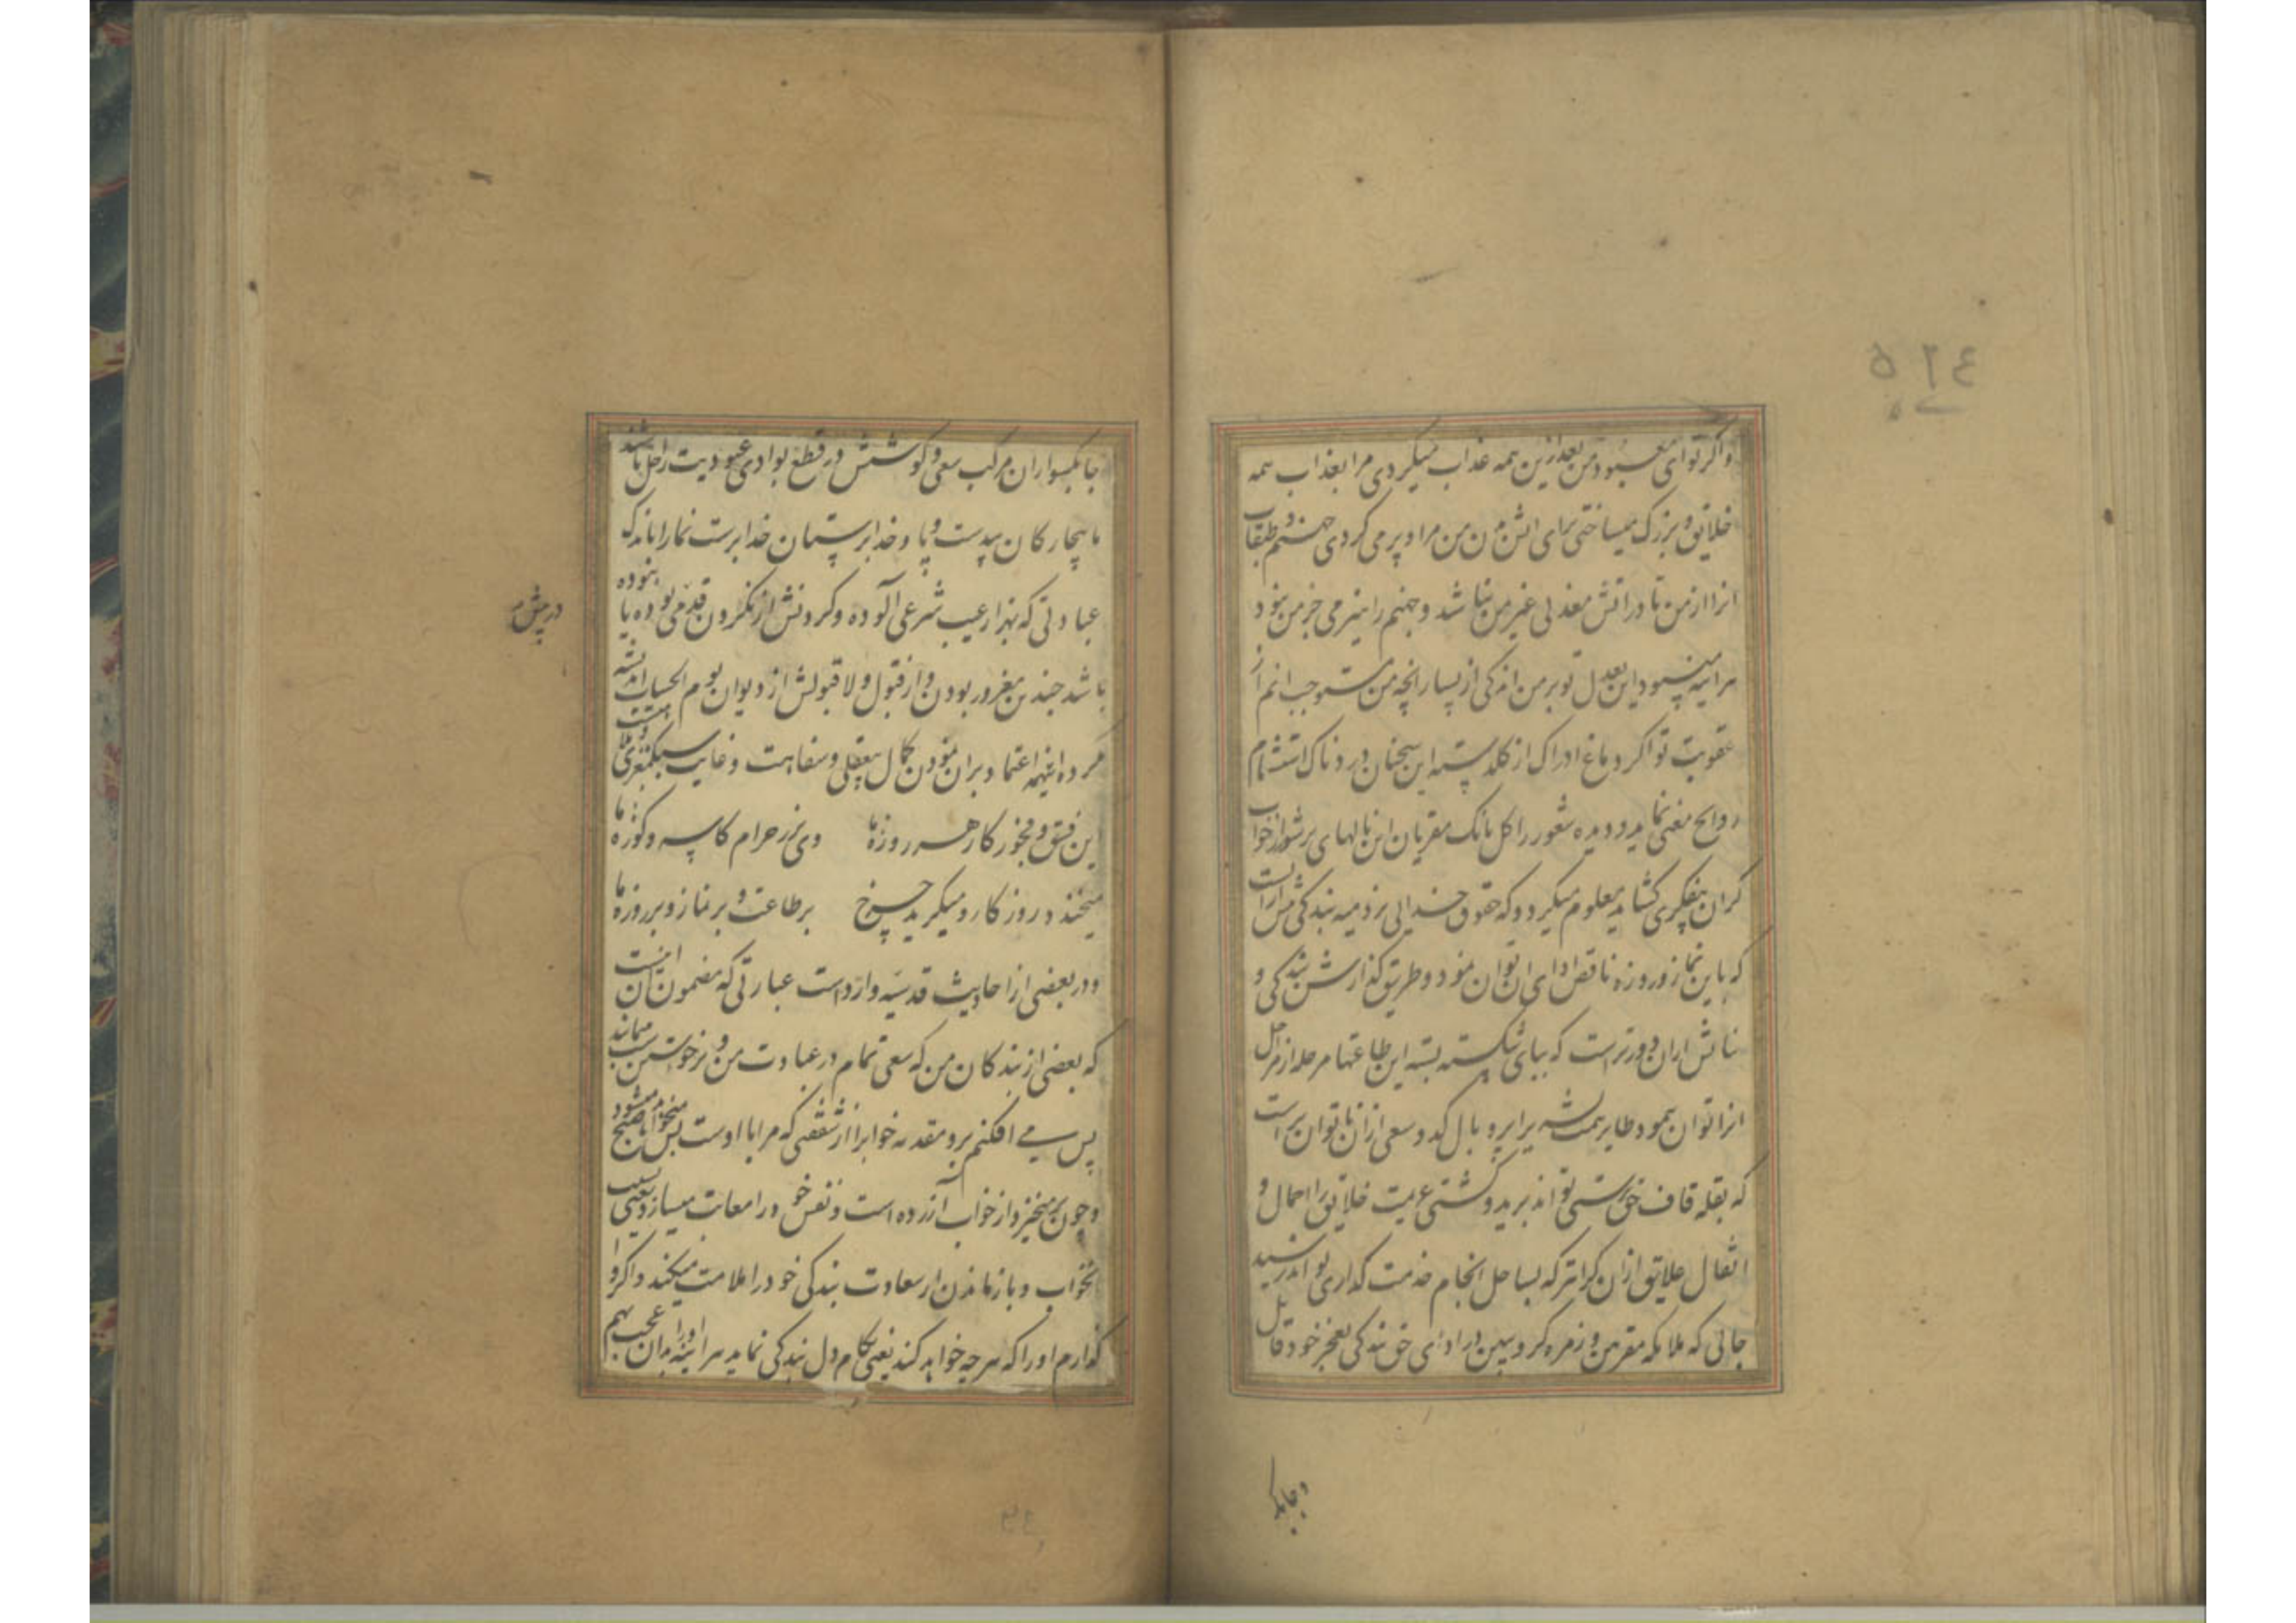 واکر تو ای معبود من بعد ازین همه عذاب میکردی مرا بعذاب همه
خلایق و بزرک میساختی برای اتش دن من مرا و پر می کردی جهنم و طبقات
انرا از من تا در اتش معذبی غیر من نباشد و جهنم را هیزمی جز من نبود
هراینه میبود این بعدل تو بر من اندکی از بسیار انچه من مستوجب انم از
عقوبت تو اکر دماغ ادراک از کلدسته این سخنان دردناک استشمام
روایح معنی نماید و دیده شعور را کل بانک مقریان این نالهای پرشور از خواب
کران بیفکری کشاید معلوم میکردد که حقوق خدایی بر ذمیه بندکی بیش از انست
که باین نماز و روزه ناقص ادای ان توان نمود و طریق کذارش بندکی و
ستایش از ان دورتر است که بپای شکسته بسته این طاعتها مرحله از مراحل
انرا توان پیمود طایر همت بشر را پر و بال کد و سعی از ان ناتوان تر است
که بقله قاف حق پرستی تواند پرید و کشتی عزیمت خلایق را احمال و
اثقال علایق از ان کرانتر که بساحل انجام خدمت کذاری تواند رسید
جائی که ملائکه مقربین و زمره کروبیین در ادای حق بندکی بعجز خود قایل
و چابک
چابکسواران مرکب سعی و کوشش در قطع بوادی عبودیت راجل باشند
ما بیچارکان بیدست و پا و خدابرستمان خدابرست نما را باندک
عبادتی که بهزار عیب شرعی آلوده و کردنش از نکردن قدمی بوده یا نبوده
باشد چندین مغرور بودن و از قبول و لاقبولش از دیوان یوم الحساب اندیشه
کرده اینهمه اعتماد بران نمودن کمال بیعقلی و سفاهت و غایت سبکمغزی و
این فسق و فجور کار هر روزه ما وی پر ز حرام کاسه و کوزه ما
میخندد روزکار و میکرید چرخ بر طاعت و بر نماز و بر روزه ما
و در بعضی از احادیث قدسیه وارد است عبارتی که مضمون ان اینست
که بعضی از بندکان من که سعی تمام در عبادت من و
پس می افکنم برو مقدمه خواب را از شفقتی که مرا با اوست پس میخوابد
و چون برمیخیزد از خواب آزرده است و نفس خود را معاتب میسازد یعنی بسبب
بخواب و بازماندن از سعادت بندکی خود را ملامت میکند و اکر وا
کذارم او را که هرچه خواهد کند یعنی بکام دل بندکی نماید هراینه او را بدان عجب بهم